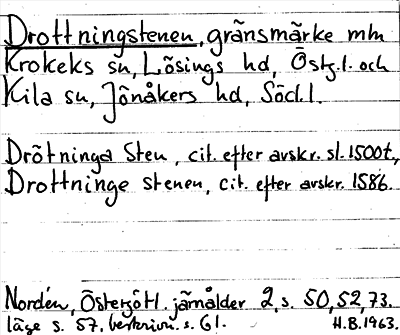 Drottningstenen, gränsmärke mln
Krokeks sn, Lösings hd, Östg.l. och
Kila sn, Jönåkers hd, Södl.
Drötninga Sten, cit. efter avskr. sl. 1500t.,
Drottninge stenen, cit. efter avskr. 1586.
Nordén, Östergötl. järnålder 2, s. 50, 52, 73.
läge s. 57, beskrivn. s. 61. H.B. 1963.